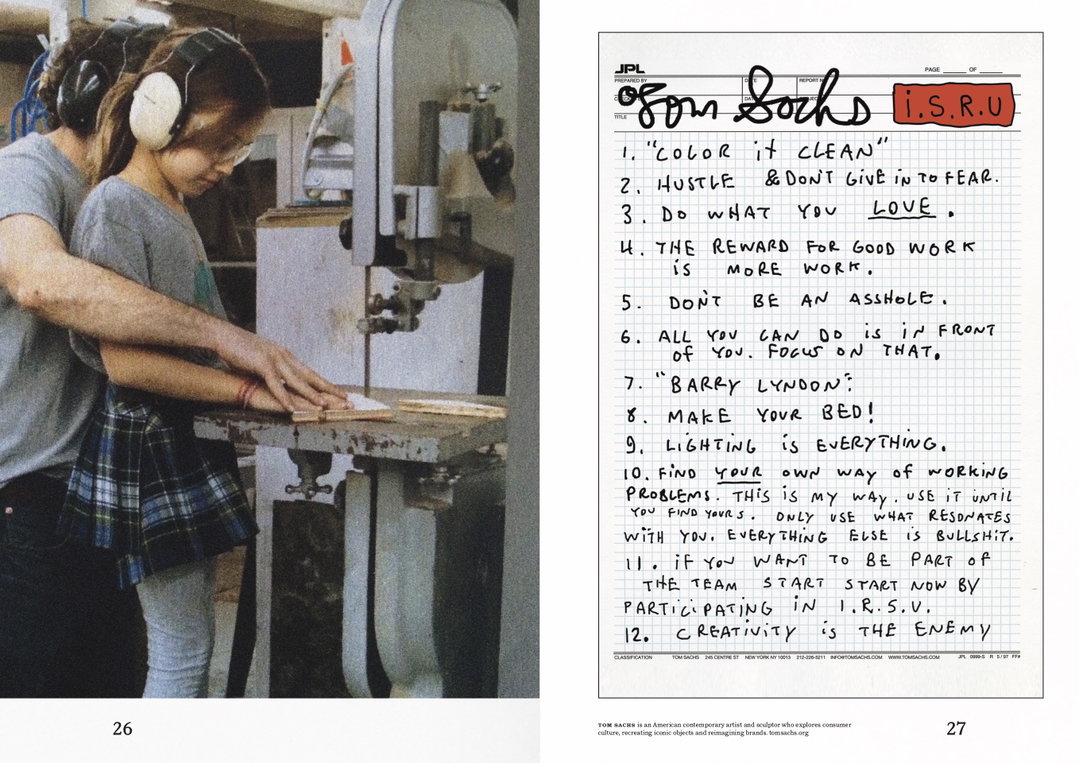 26
JPL
PAGE OF
PREPARED BY
REPORT
TITLE
Tom Sachs
i.S.R.U
1. "COLOR it CLEAN"
2. HUSTLE & DON'T GIVE IN TO FEAR.
3. DO WHAT YOU LOVE.
4. THE REWARD FOR GOOD WORK
iS MORE WORK.
5. DON'T BE AN ASSHOLE.
6. ALL YOU CAN DO iS iN FRONT
OF YOU. FOCUS ON THAT.
7. "BARRY LYNDON".
8. MAKE YOUR BED!
9. LiGHTiNG iS EVERYTHING.
10. FiND YOUR OWN WAY OF WORKING
PROBLEMS. THiS iS MY WAY. USE iT UNTiL
YOU FiND YOURS. ONLY USE WHAT RESONATES
WiTH YOU. EVERYTHING ELSE iS BULLSHiT.
11. iF YOU WANT TO BE PART OF
THE TEAM START START NOW BY
PARTiCiPATiNG iN I.R.S.U.
12. CREATiViTY iS THE ENEMY
CLASSIFICATION TOM SACHS 245 CENTRE ST NEW YORK NY 10013 212-226-5211 INFO@TOMSACHS.COM WWW.TOMSACHS.COM JPL 0999-S R 5/97 FF#
TOM SACHS is an American contemporary artist and sculptor who explores consumer
culture, recreating iconic objects and reimagining brands. tomsachs.org
27